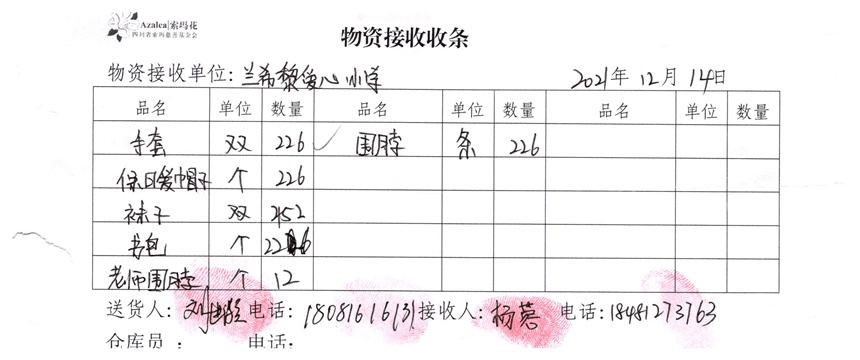 Azalea|索玛花
四川省索玛慈善基金会
物资接收收条
物资接收单位：兰希黎爱心小学 2021年12月14日
品名 单位 数量 品名 单位 数量 品名 单位 数量
手套 双 226 围脖 条 226
保暖帽子 个 226
袜子 双 452
书包 个 226
老师围脖 个 12
送货人： 电话：18081616131 接收人：杨蓉 电话：18481273763
仓库员： 电话：